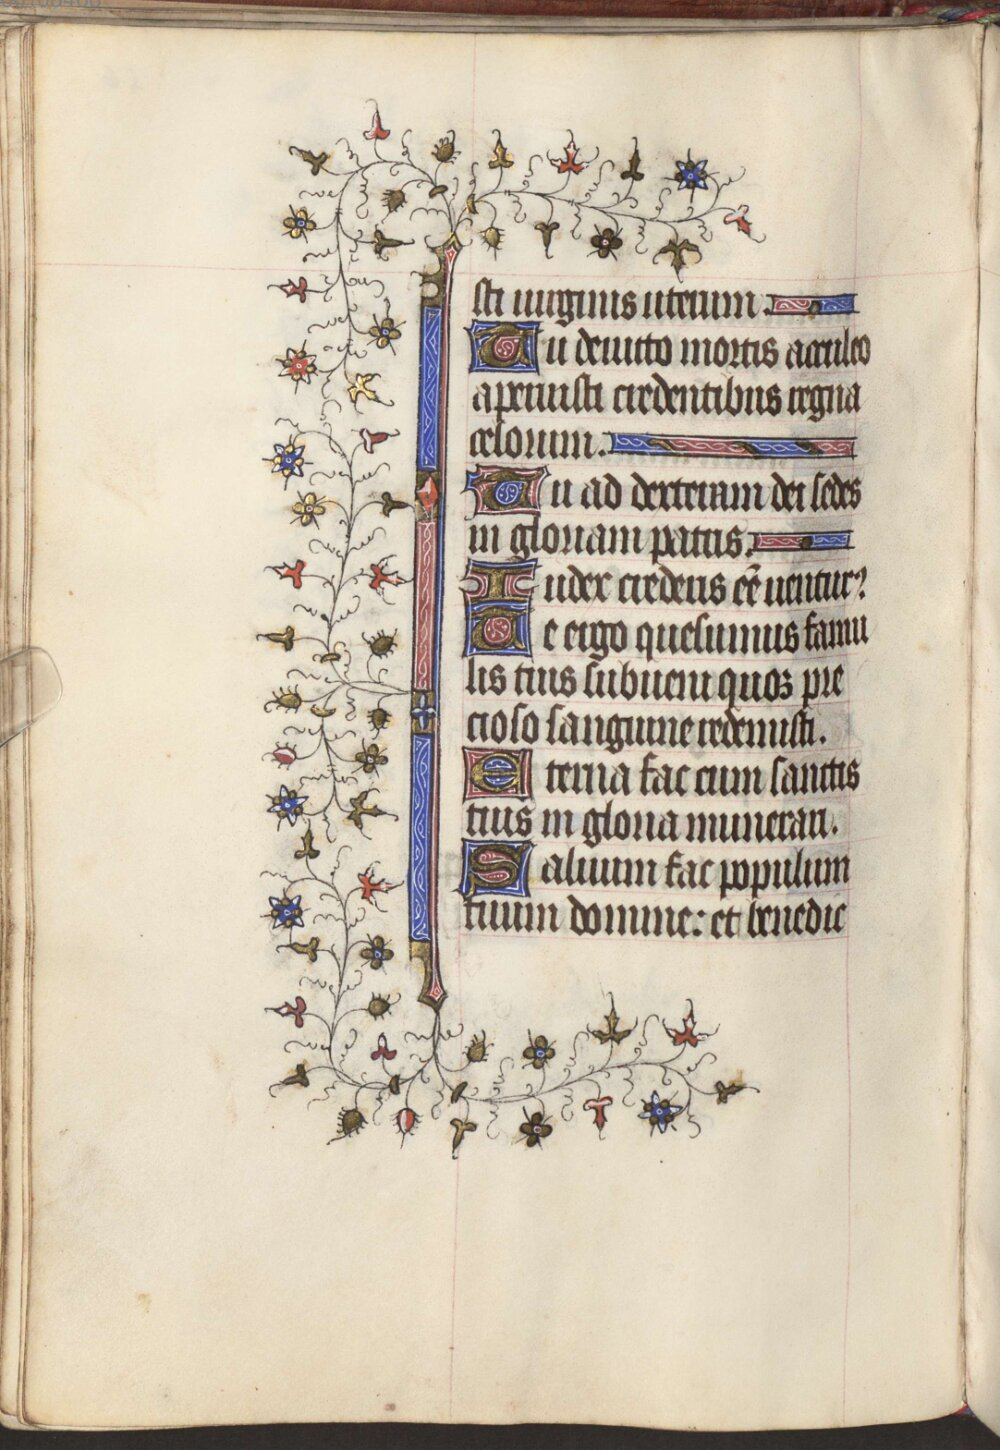 sti uirginis uterum.
Tu deuicto mortis aculeo
aperuisti credentibus regna
celorum.
Tu ad dexteram dei sedes
in gloriam patris.
Iudex crederis eē uentur?
Te ergo quesumus famu
lis tuis subueni quoꝝ pre
cioso sanguine redemisti.
Eterna fac cum sanctis
tuis in gloria munerari.
Saluum fac populum
tuum domine: et benedic